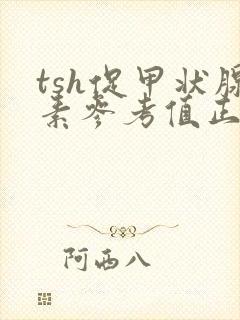 tsh促甲状腺
素参考值正
阿西八